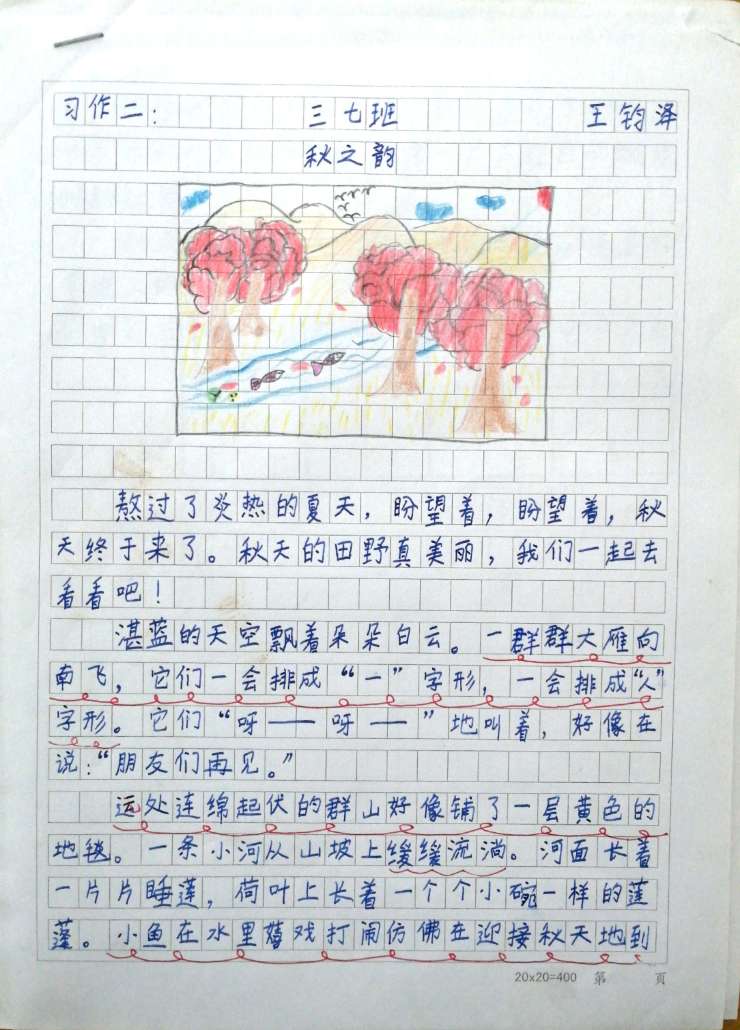 习作二： 三七班 王钧泽
秋之韵
熬过了炎热的夏天，盼望着，盼望着，秋
天终于来了。秋天的田野真美丽，我们一起去
看看吧！
湛蓝的天空飘着朵朵白云。一群群大雁向
南飞，它们一会排成“一”字形，一会排成“人”
字形。它们“呀——呀——”地叫着，好像在
说：“朋友们再见。”
远处连绵起伏的群山好像铺了一层黄色的
地毯。一条小河从山坡上缓缓流淌。河面长着
一片片睡莲，荷叶上长着一个个小碗一样的莲
蓬。小鱼在水里嬉戏打闹仿佛在迎接秋天地到
20x20=400 第 页